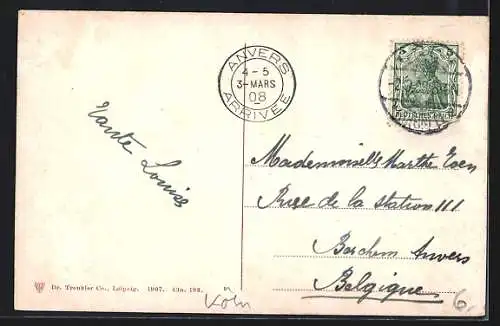 ANVERS
4-5
3-MARS
08
ARRIVÉE
5 5
DEUTSCHES REICH
Tante Louise
Mademoiselle Marthe
Rue de la Station 111
Berchem Anvers
Belgique
Dr. Trenkler Co., Leipzig. 1907. Cln. 198.
Köln
6